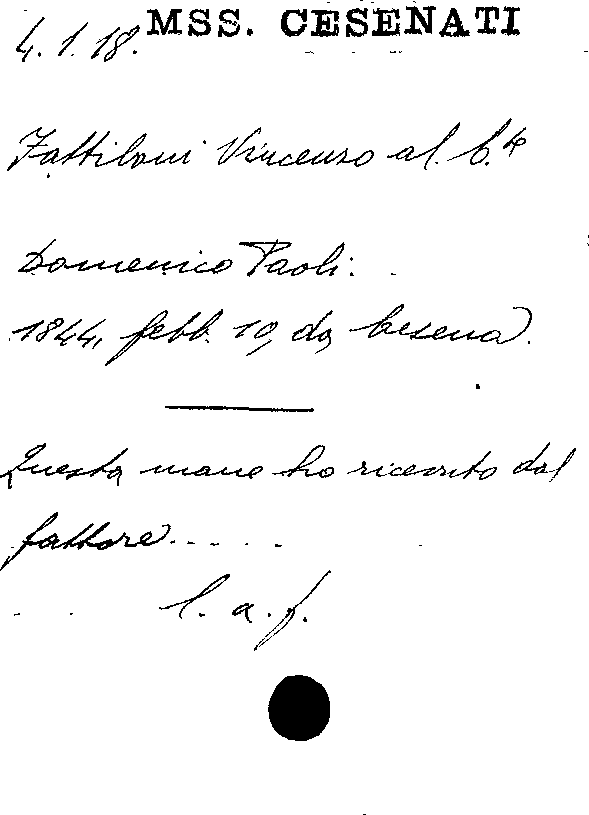 MSS. CESENATI
4.1.18.
Fattiboni Vincenzo al C.te
Domenico Paoli.
1844, febb. 10, da Cesena.
Questa mane ho ricevuto dal
fattore.....
l. a. f.